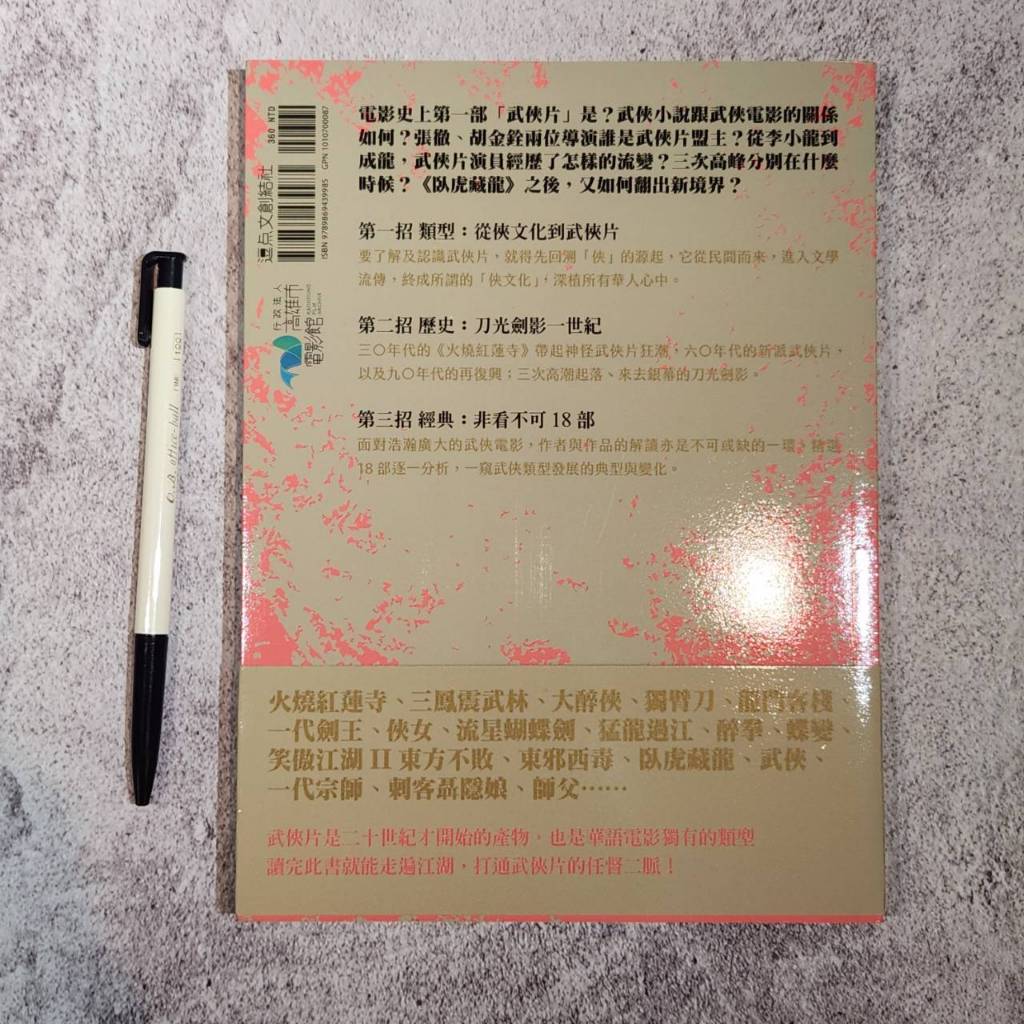 電影史上第一部「武俠片」是？武俠小說跟武俠電影的關係
如何？張徹、胡金銓兩位導演誰是武俠片盟主？從李小龍到
成龍，武俠片演員經歷了怎樣的流變？三次高峰分別在什麼
時候？《臥虎藏龍》之後，又如何翻出新境界？
第一招 類型：從俠文化到武俠片
要了解及認識武俠片，就得先回溯「俠」的源起，它從民間而來，進入文學
流傳，終成所謂的「俠文化」，深植所有華人心中。
第二招 歷史：刀光劍影一世紀
三〇年代的《火燒紅蓮寺》帶起神怪武俠片狂潮，六〇年代的新派武俠片，
以及九〇年代的再復興；三次高潮起落、來去銀幕的刀光劍影。
第三招 經典：非看不可 18 部
面對浩瀚廣大的武俠電影，作者與作品的解讀亦是不可或缺的一環，精選
18 部逐一分析，一窺武俠類型發展的典型與變化。
火燒紅蓮寺、三鳳震武林、大醉俠、獨臂刀、龍門客棧、
一代劍王、俠女、流星蝴蝶劍、猛龍過江、醉拳、蝶變、
笑傲江湖 II 東方不敗、東邪西毒、臥虎藏龍、武俠、
一代宗師、刺客聶隱娘、師父……
武俠片是二十世紀才開始的產物，也是華語電影獨有的類型
讀完此書就能走遍江湖，打通武俠片的任督二脈！
360 NTD
ISBN 9789869439985 GPN 1010700087
逗点文創結社
行政法人
高雄市
電影館
KAOHSIUNG
FILM
ARCHIVE
O.B. office-ball ONE 1001